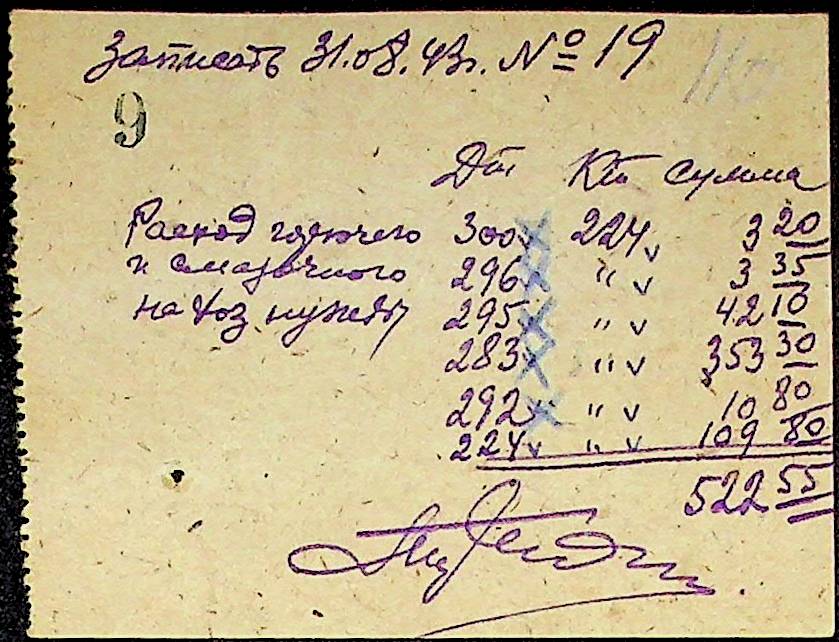 Записать 31.08.43г. № 19
9
Дт Кт сумма
Расход горючего 300 224 3 20
и смазочного 296 " 3 35
на хоз нужды 295 " 42 10
283 " 353 30
292 " 10 80
224 " 109 80
522 55